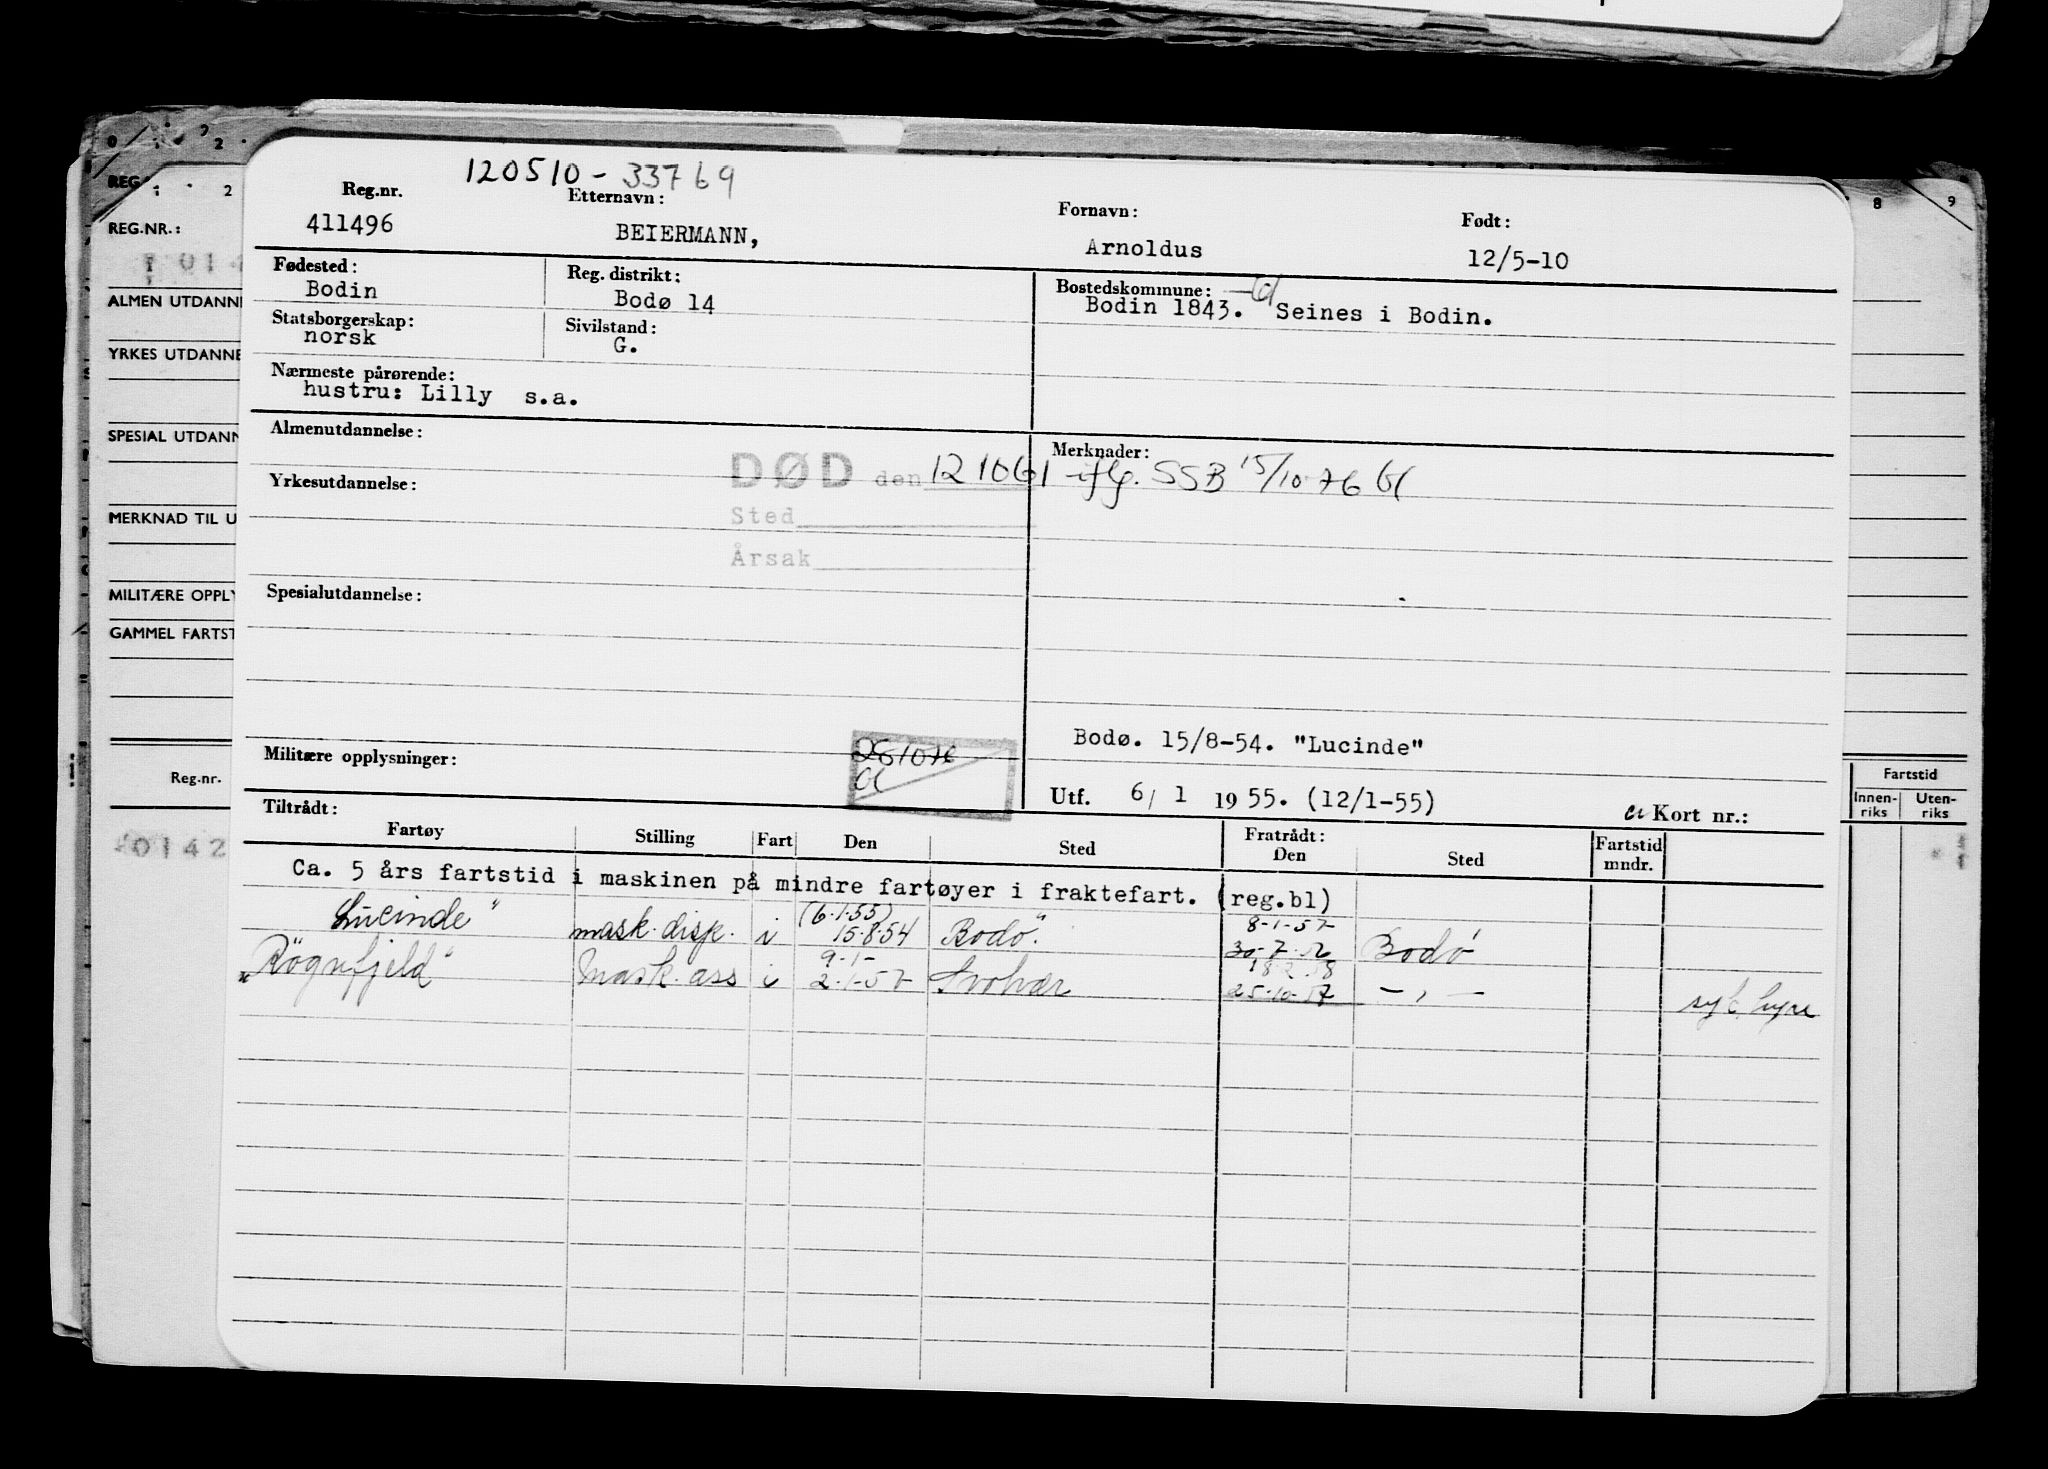 120510-33769
Reg.nr. Etternavn: Fornavn: Født:
411496 BEIERMANN, Arnoldus 12/5-10
Fødested: Reg. distrikt: Bostedskommune:
Bodin Bodø 14 Bodin 1843. Seines i Bodin.
Statsborgerskap: Sivilstand:
norsk G.
Nærmeste pårørende:
hustru: Lilly s.a.
Almenutdannelse: Merknader:
DØD den 121061 iflg. SSB 15/10-76
Yrkesutdannelse:
Sted
Årsak
Spesialutdannelse:
Bodø. 15/8-54. "Lucinde"
Militære opplysninger:
Utf. 6/ 1 1955. (12/1-55) Kort nr.:
Tiltrådt: Fratrådt:
Fartøy Stilling Fart Den Sted Den Sted Fartstid mndr.
Ca. 5 års fartstid i maskinen på mindre fartøyer i fraktefart. (reg.bl)
(6.1.55) 8-1-57
Lucinde" mask.disp. i 15.8.54 Bodø. 30-7-56 Bodø
9-1- 18.2.58
"Rögnfjeld" Mask.ass i 2.1-57 Svolvær 25-10-57 — , —
REG.NR.:
014
ALMEN UTDANNE
YRKES UTDANNE
SPESIAL UTDANN
MERKNAD TIL U
MILITÆRE OPPLY
GAMMEL FARTST
Reg.nr.
0142
8 9
Fartstid
Innen-riks Uten-riks